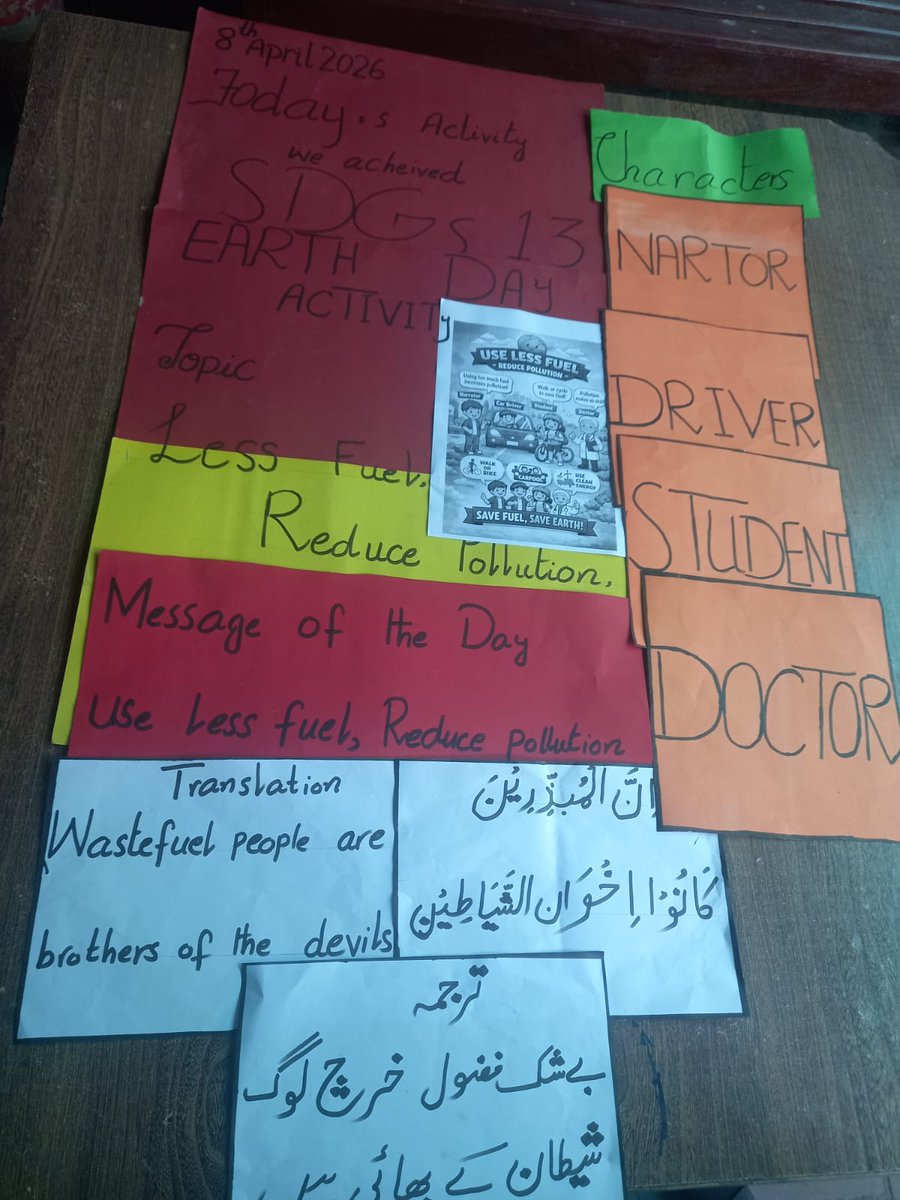 8th April 2026
Today,s Activity
we acheived
SDGs 13
EARTH DAY
ACTIVITY
Topic
Less Fuel,
Reduce Pollution.
USE LESS FUEL
- REDUCE POLLUTION -
Using too much fuel
increases pollution!
Walk or cycle
to save fuel!
Pollution
makes us sick!
Narrator
Car Driver
Student
Doctor
WALK
OR
BIKE
CARPOOL
USE
CLEAN
ENERGY
SAVE FUEL, SAVE EARTH!
Message of the Day
Use Less fuel, Reduce pollution
Characters
NARTOR
DRIVER
STUDENT
DOCTOR
Translation
Wastefuel people are
brothers of the devils
اِنَّ الْمُبَذِّرِيْنَ
كَانُوْۤا اِخْوَانَ الشَّيَاطِيْنِ
ترجمہ
بے شک فضول خرچ لوگ
شیطان کے بھائی